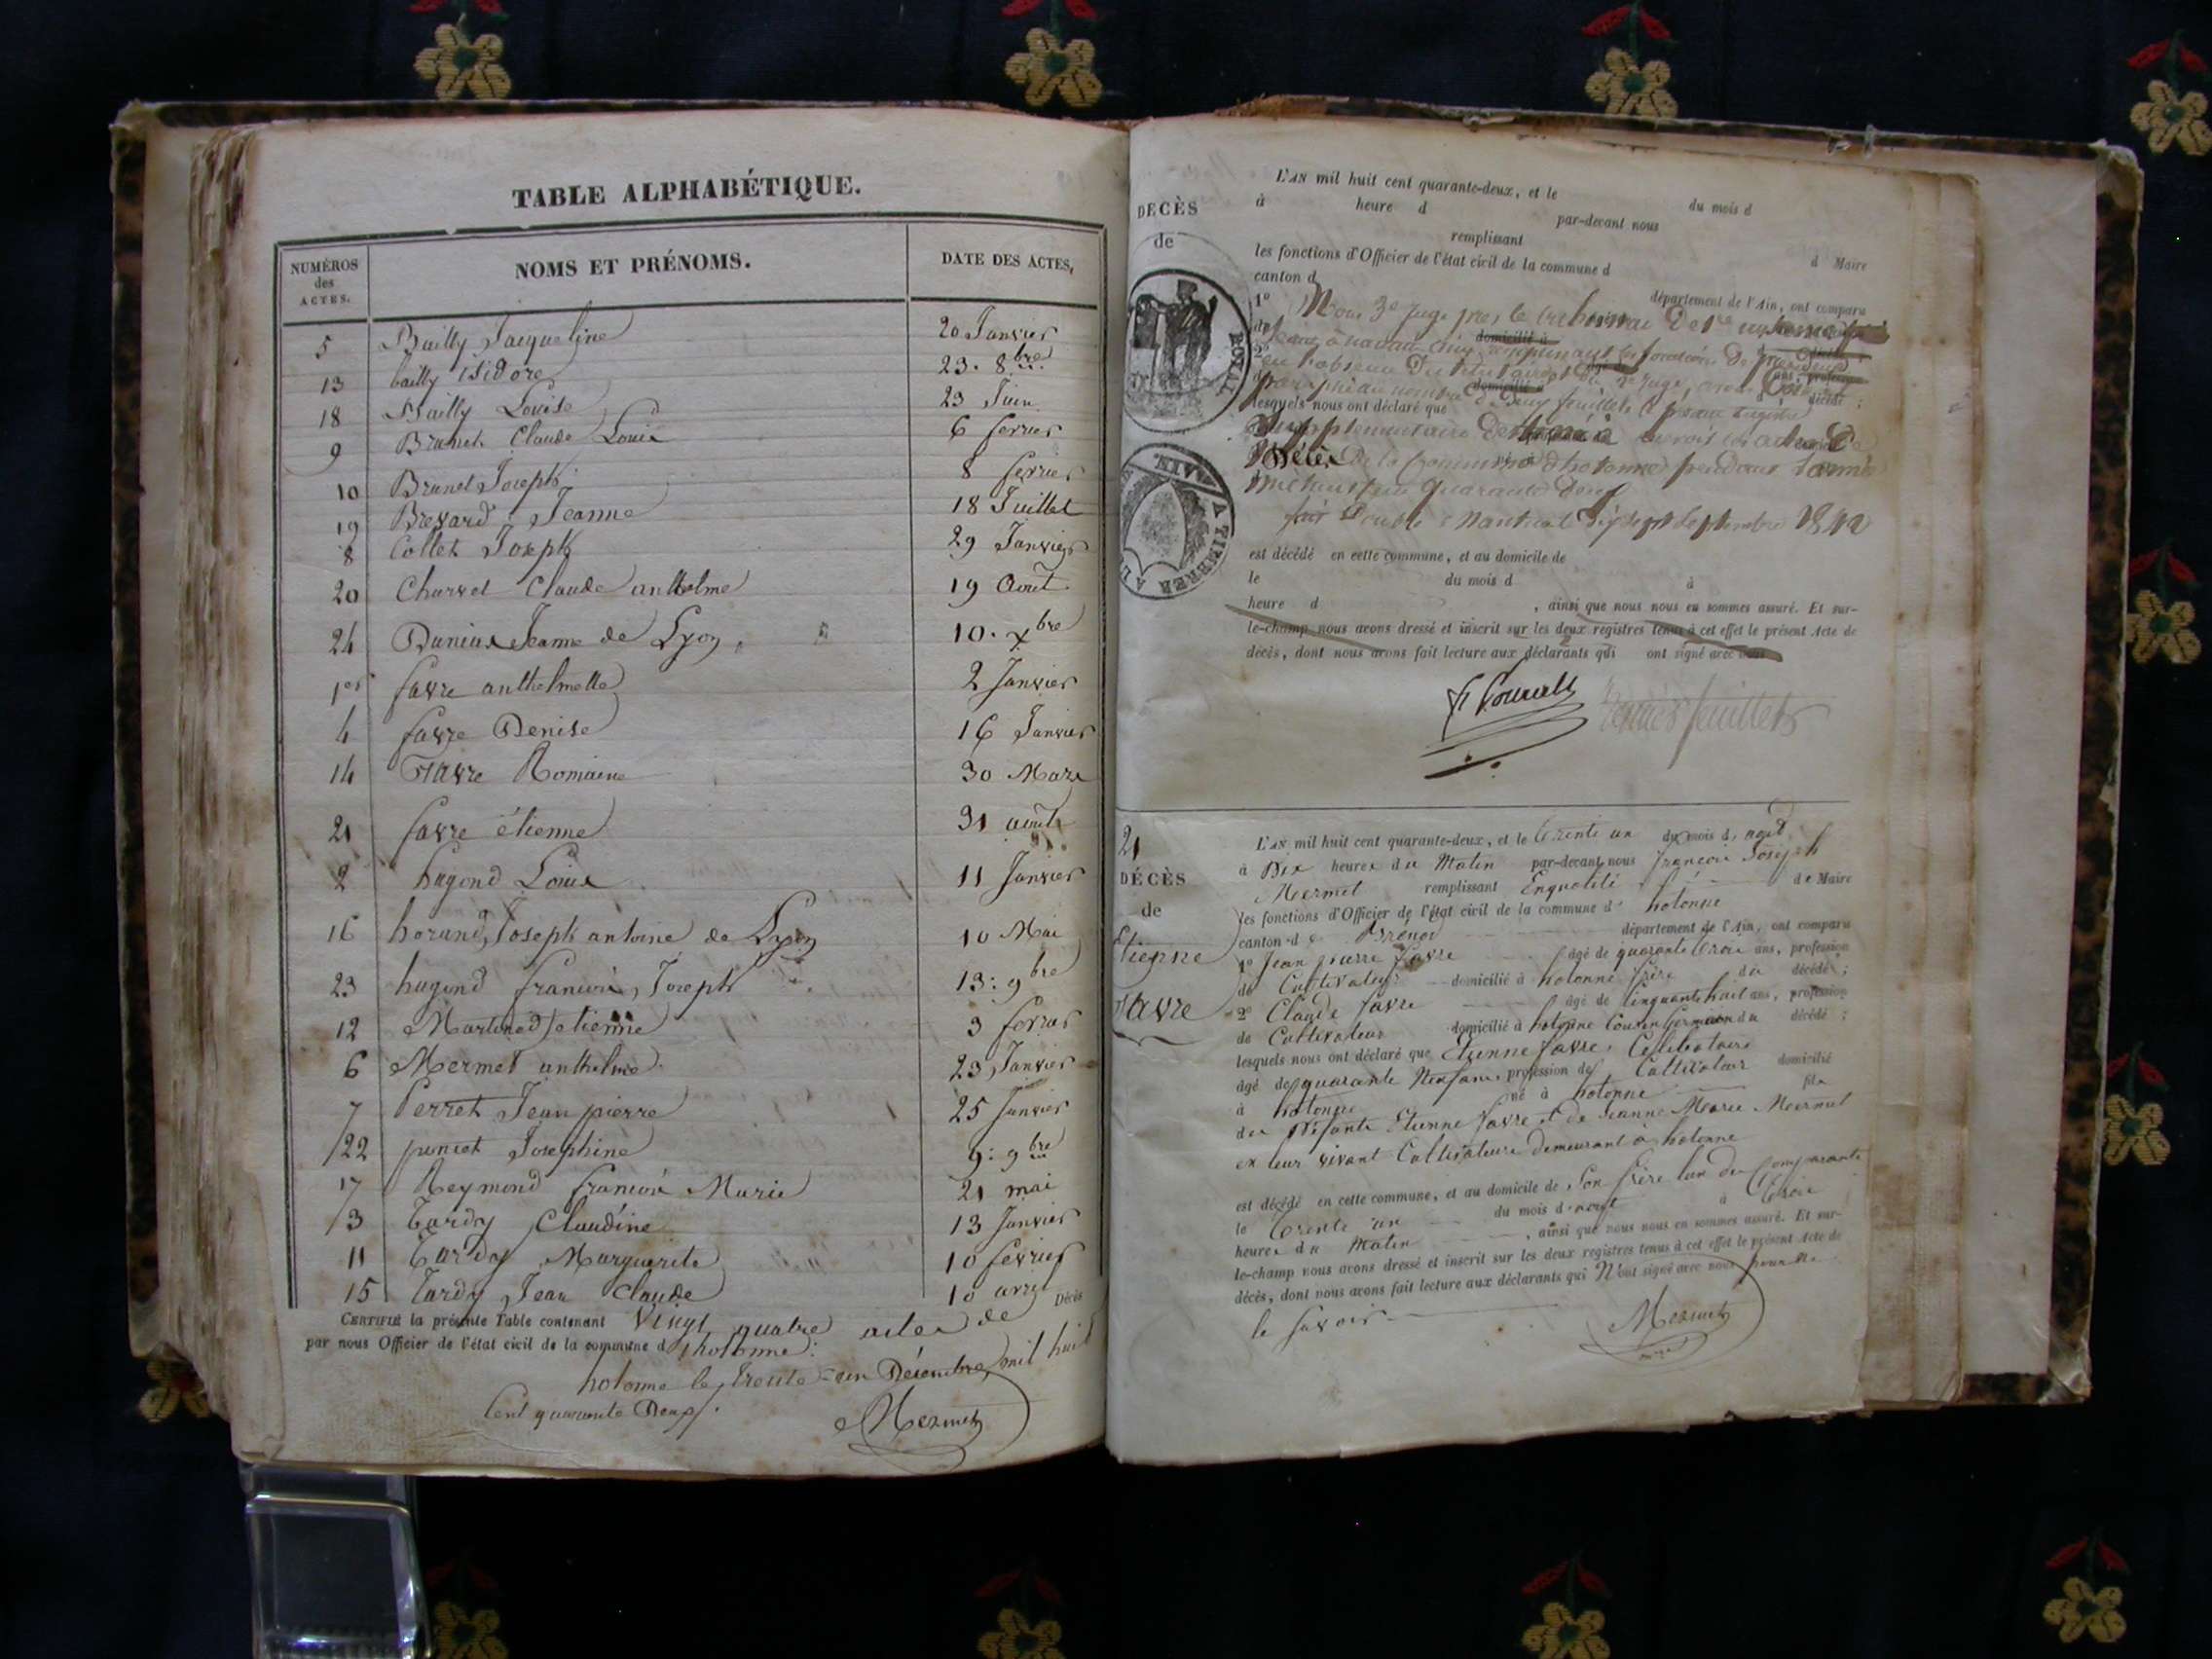 TABLE ALPHABÉTIQUE.
NUMÉROS des ACTES. NOMS ET PRÉNOMS. DATE DES ACTES.
5 Bailly Jacqueline 20 Janvier
13 bailly isidore 23. 8.bre
18 Bailly Louise 23 Juin
9 Brunet Claude Louis 6 fevrier
10 Brunet Joseph 8 fevrier
19 Brevard Jeanne 18 Juillet
8 Collet Joseph 29 Janvier
20 Charvet Claude anthelme 19 Août
24 Jeanne de Lyon 10. xbre
1er favre anthelmette 2 Janvier
4 favre Denise 16 Janvier
14 Favre Romaine 30 Mars
21 favre étienne 31 août
2 hugond Louis 11 Janvier
16 horand, Joseph antoine de Lyon 10 Mai
23 hugond francois, Joseph 13: 9bre
12 Martinod etienne 3 fevrier
6 Mermet anthelme 23 Janvier
7 Perret Jean pierre 25 Janvier
22 poncet Josephine 9: 9bre
17 Reymond francois Marie 21 mai
3 Tardy Claudine 13 Janvier
11 Tardy Marguerite 10 fevrier
15 Tardy Jean Claude 10 avril
CERTIFIÉ la présente Table contenant Vingt quatre actes de Décès
par nous Officier de l'état civil de la commune d'hotonne:
hotonne le trente un Décembre mil huit
Cent quarante Deux.
Mermet
DECÈS
de
ROYAL
A TIMBRER A L'
L'AN mil huit cent quarante-deux, et le du mois d
à heure d par-devant nous
remplissant d Maire
les fonctions d'Officier de l'état civil de la commune d
canton d département de l'Ain, ont comparu
1° Nous 3e Juge près le tribunal De 1re
à nantua remplissant les fonctions De President
en l'absence Du titulaire et Du 2e Juge, avons
paraphé au nombre de Deux feuillets le présent registre
lesquels nous ont déclaré que
supplementaire Destiné à recevoir les actes De
Décès De la Commune d'hotonne pendant l'année
mil huit cent quarante Deux
fait Double à Nantua le Dix sept septembre 1842
est décédé en cette commune, et au domicile de
le du mois d à
heure d , ainsi que nous nous en sommes assuré. Et sur-
le-champ nous avons dressé et inscrit sur les deux registres tenus à cet effet le présent Acte de
décès, dont nous avons fait lecture aux déclarants qui ont signé avec nous
feuillet
21
DÉCÈS
de
Etienne
favre
L'AN mil huit cent quarante-deux, et le trente un du mois d'août
à Dix heures du Matin par-devant nous françois Joseph
Mermet remplissant Enqualité de Maire
les fonctions d'Officier de l'état civil de la commune d' hotonne
canton de Brenod département de l'Ain, ont comparu
1° Jean pierre favre âgé de quarante trois ans, profession
de Cultivateur domicilié à hotonne frère du décédé;
2° Claude favre âgé de Cinquante huit ans, profession
de Cultivateur domicilié à hotonne Cousin Germain du décédé;
lesquels nous ont déclaré que Etienne favre, Celibataire
âgé de quarante Neuf ans, profession de Cultivateur domicilié
à hotonne né à hotonne fils
des Défunts Etienne favre et de Jeanne Marie Mermet
en leur vivant Cultivateurs demeurant à hotonne
est décédé en cette commune, et au domicile de Son frère lun des Comparants
le trente un du mois d'août à trois
heures du Matin , ainsi que nous nous en sommes assuré. Et sur-
le-champ nous avons dressé et inscrit sur les deux registres tenus à cet effet le présent Acte de
décès, dont nous avons fait lecture aux déclarants qui N'ont signé avec nous pour ne
le savoir
Mermet